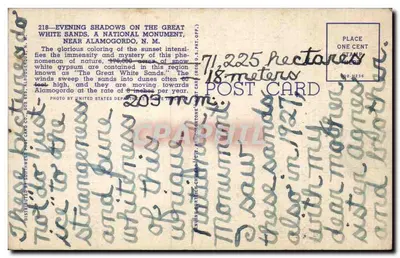 218—EVENING SHADOWS ON THE GREAT
WHITE SANDS, A NATIONAL MONUMENT,
NEAR ALAMOGORDO, N. M.
The glorious coloring of the sunset intensi-
fies the immensity and mystery of this phe-
nomenon of nature, 176,000 acres of snow
white gypsum are contained in this region
known as "The Great White Sands." The
winds sweep the sands into dunes often
feet high, and they are moving towards
Alamogordo at the rate of 8 inches per year.
PHOTO BY UNITED STATES
71,225 hectares
18 meters
203 mm.
POST CARD
PLACE
ONE CENT
STAMP
HERE
ice to the
strangeness
and pure
whiteness
of this
unique
Monument
I saw
these sands
also in 1927,
with my
dear mother
sister Agnes